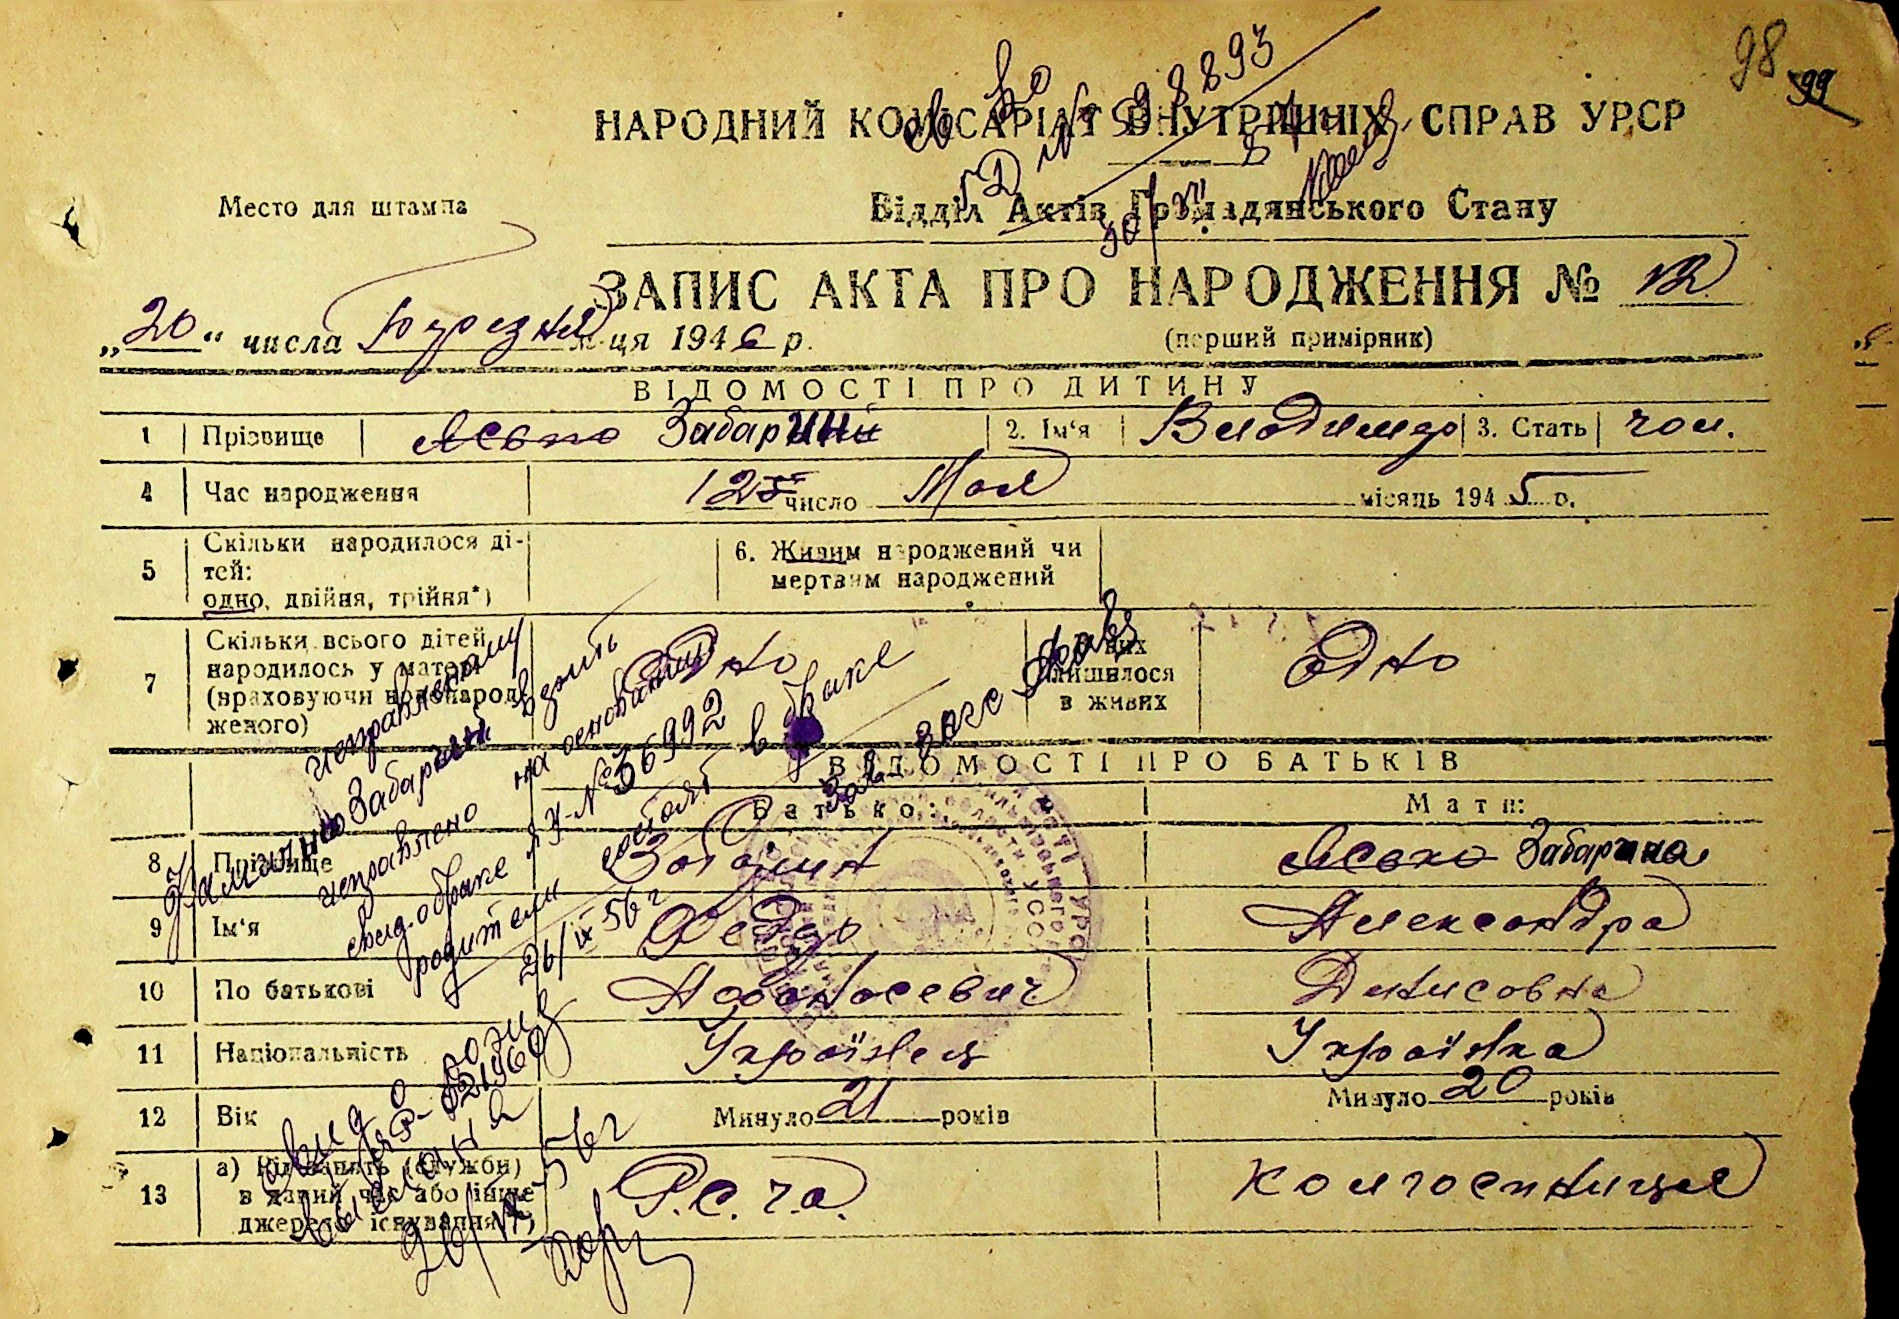 98 99
НАРОДНИЙ КОМІСАРІАТ ВНУТРІШНІХ СПРАВ УРСР
Место для штампа
Відділ Актів Громадянського Стану
ЗАПИС АКТА ПРО НАРОДЖЕННЯ №
„20“ числа березня м-ця 1946 р.
(перший примірник)
ВІДОМОСТІ ПРО ДИТИНУ
1 Прізвище Забарин 2. Ім'я Владимер 3. Стать чол.
4 Час народження 12 число Мая місяць 1945 р.
5 Скільки народилося ді-
тей:
одно, двійня, трійня*)
6. Живим народжений чи
мертвим народжений
7 Скільки всього дітей
народилось у матері
(враховуючи новонарод-
женого)
Одно
них
лишилося
в живих
Одно
ВІДОМОСТІ ПРО БАТЬКІВ
Батько: Мати:
8 Прізвище Забарина
9 Ім'я Федір Александра
10 По батькові Афонасевич Динисовна
11 Національність Українец Українка
12 Вік Минуло 21 років Минуло 20 років
13 а) Рід занять (служби)
в даний час або інше
джерело існування
Р.С.Ч.А. колгоспниця
Фамилию Забарин
исправлено на основании
свид. о браке №
родители состоят в браке
Зав. ЗАГС
26/IX 56 г
26/IX 56 г